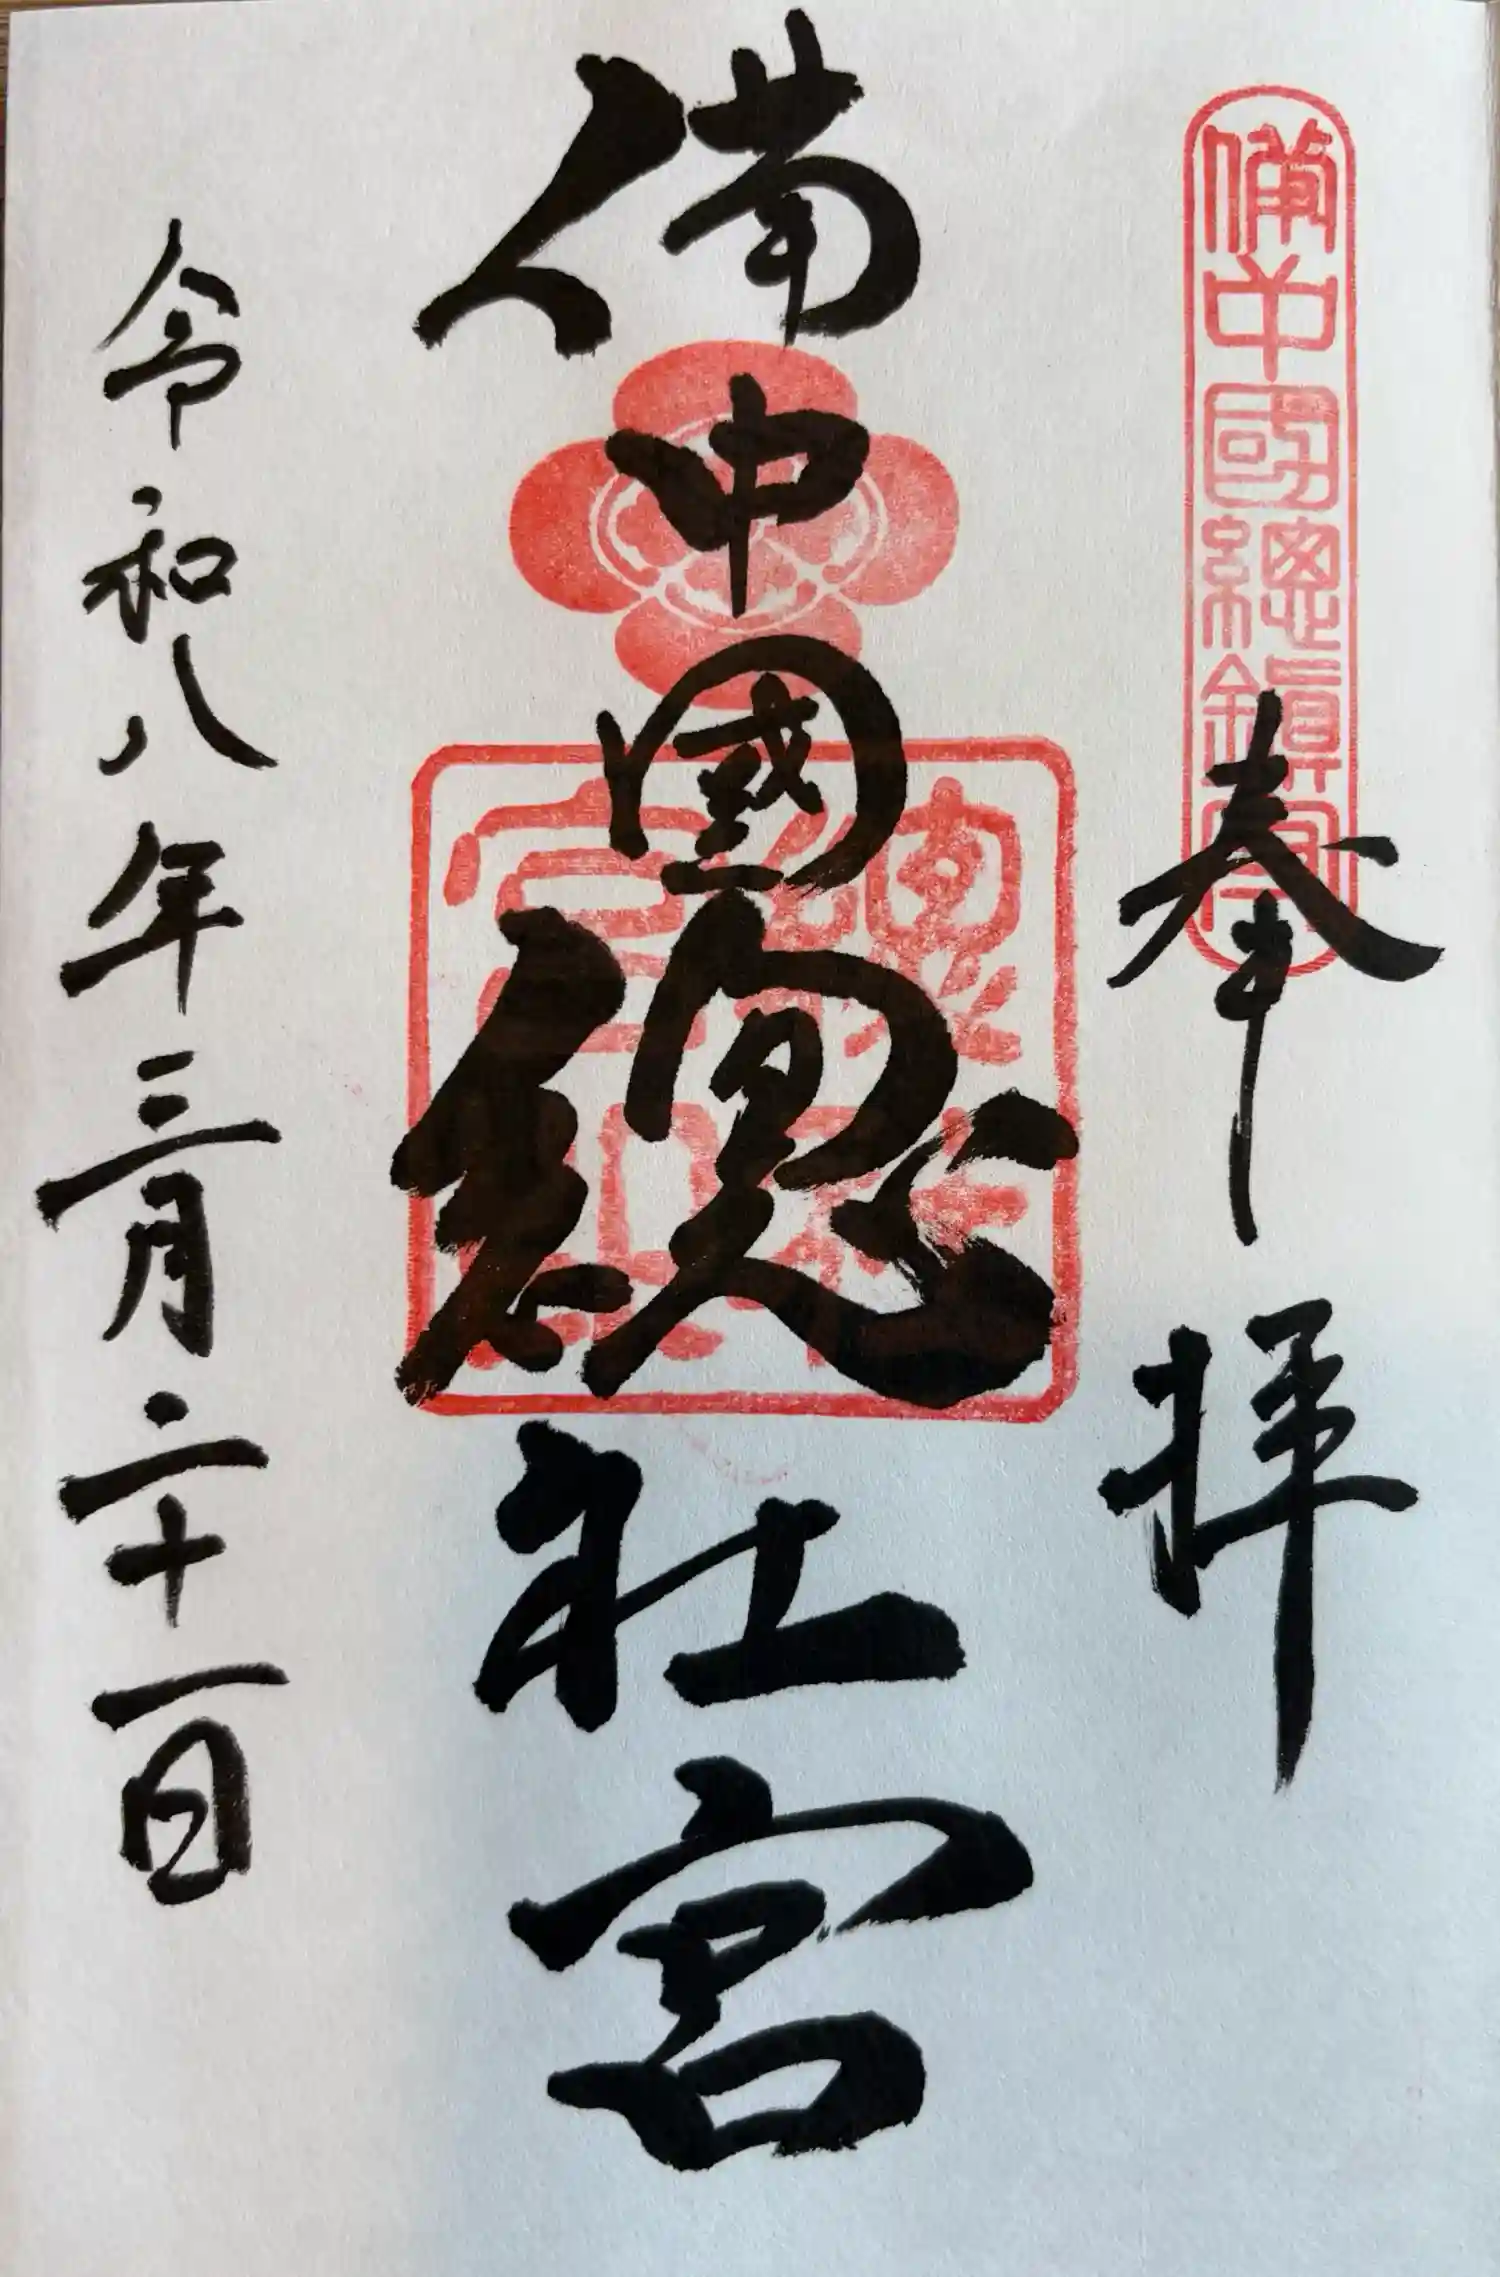 備中國總鎮守
奉拝
備中國總社宮
總社
宮印
令和八年三月二十一日